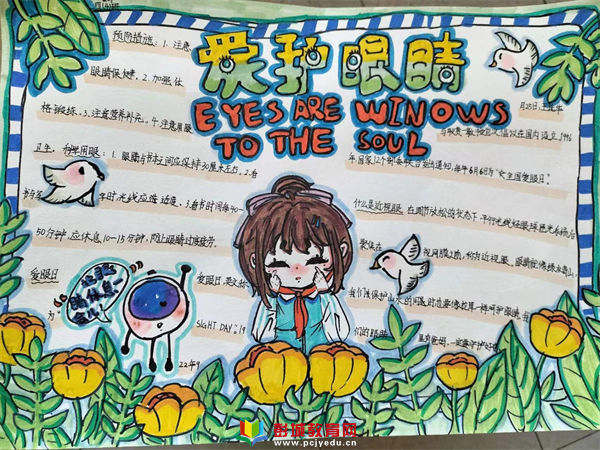 爱护眼睛
EYES ARE WINOWS
TO THE SOUL
预防措施：1、注意
眼睛保健。2、加强体
格锻炼。3、注意营养补充。4、注意用眼
卫生。科学用眼：1、眼睛与书本之间应保持30厘米左右。2、看
书与写
时，光线应适度。3、看书时间每40-
50分钟，应休息10-15分钟，防止眼睛过度疲劳。
爱眼日
为：
爱眼日 英文
SIGHT DAY"。19
22年9
月25日，王延华
与耿贯一教授首次倡议在国内设立。1996
年，国家12个部委联合发出通知，每年6月6日为"全国爱眼日"。
什么是近视眼：在调节放松的状态下，平行光线经眼球屈光系统后
聚焦在
视网膜之前，称为近视眼。
我们
保护山水
一样呵护眼睛，我
们的眼睛
让眼睛休息一会儿!
彭城教育网
www.pcjyedu.cn